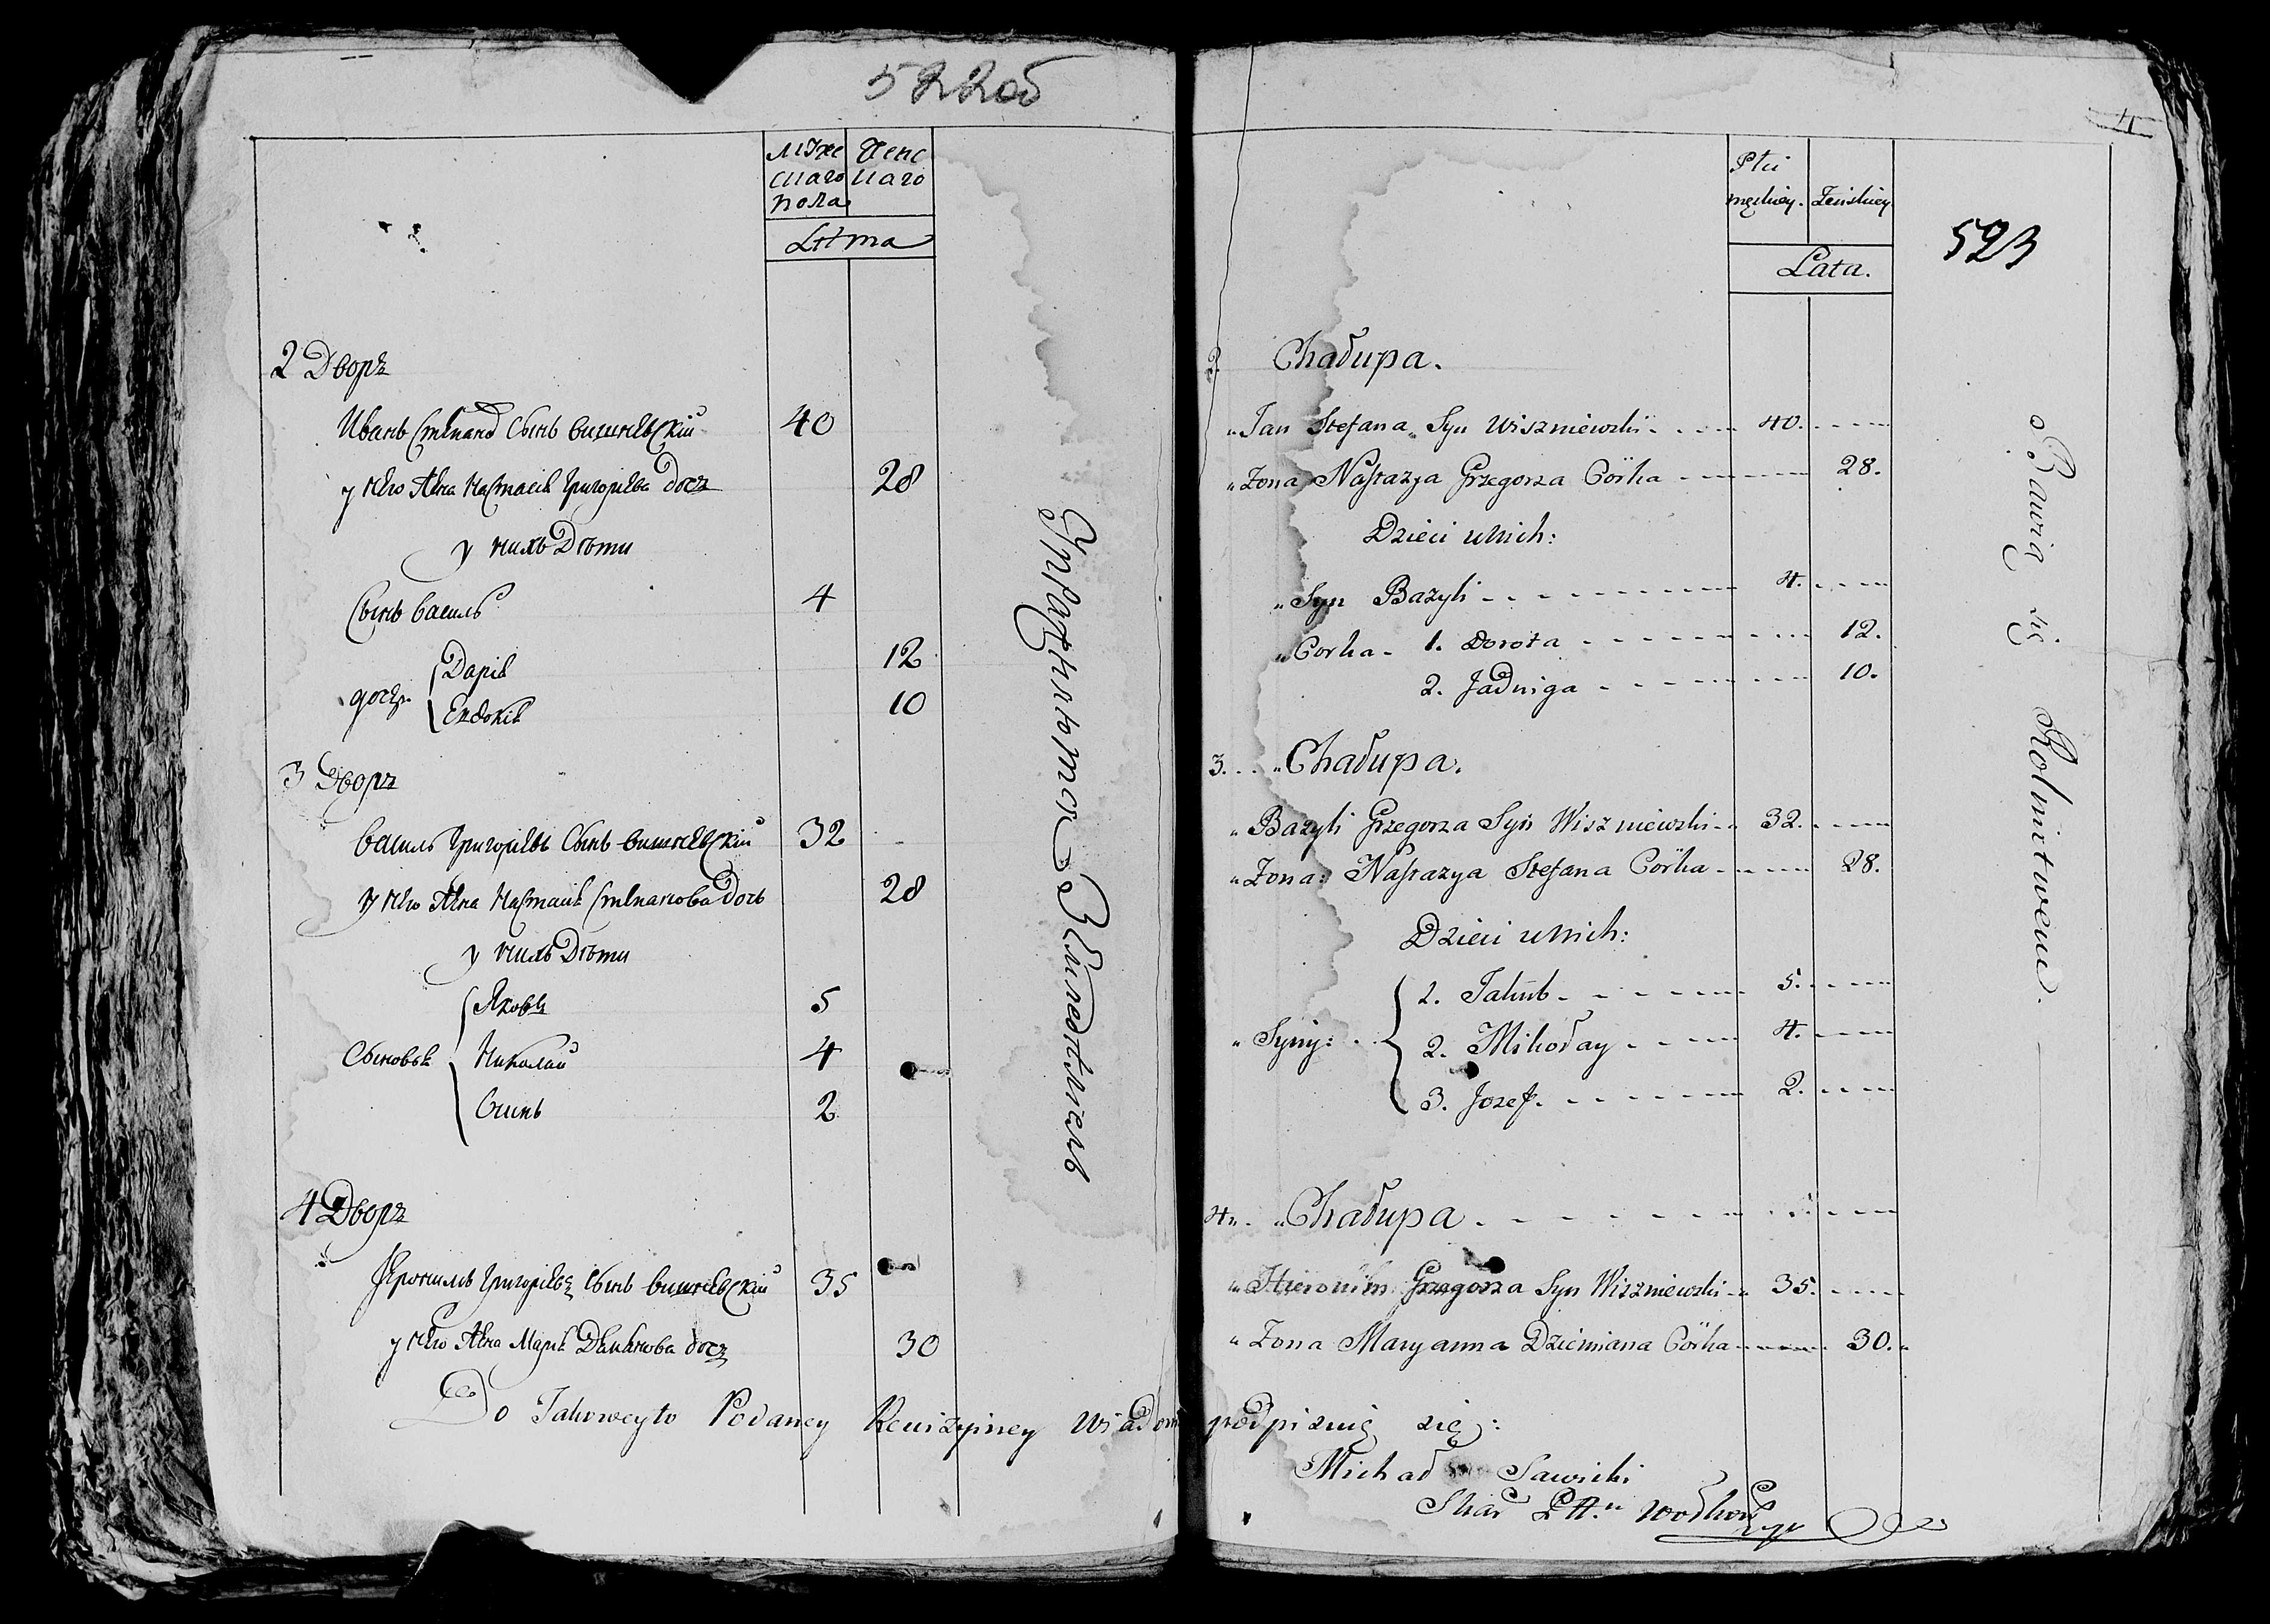 522об
Мꙋже Женс
скаго каго
пола
Лѣта
2 Дворъ
Иванъ Степановъ Сынъ Вишневскій 40
у него жена Настасія Григорьева дочь 28
у нихъ Дѣти
Сынъ Василь 4
дочери Дарія 12
Евдокія 10
3 Дворъ
Василь Григорьевъ Сынъ Вишневскій 32
у него жена Настасія Степанова Дочь 28
у нихъ Дѣти
Яковъ 5
Сыновья Николай 4
Осипъ 2
4 Дворъ
Яронимъ Григорьевъ Сынъ Вишневскій 35
у него жена Марія Деміянова дочь 30
Упражняются Земледѣліемъ
Do Takoweyto Podaney Rewizyiney Wiadom podpisuię się:
4
523
Płci
męskiey. Żeńskiey
Lata.
2. Chałupa.
Jan Stefana Syn Wiszniewski 40.
Żona Nastazya Grzegorza Córka 28.
Dzieci u Nich:
Syn Bazyli 4.
Corka 1. Dorota 12.
2. Jadwiga 10.
3. Chałupa.
Bazyli Grzegorza Syn Wiszniewski 32.
Żona Nastazya Stefana Córka 28.
Dzieci u Nich:
1. Jakub 5.
Syny: 2. Mikołay 4.
3. Jozef. 2.
4. Chałupa
Hieronim Grzegorza Syn Wiszniewski 35.
Żona Maryanna Dziemiana Córka 30.
Michał Sawicki
Bawią się Rolnictwem.